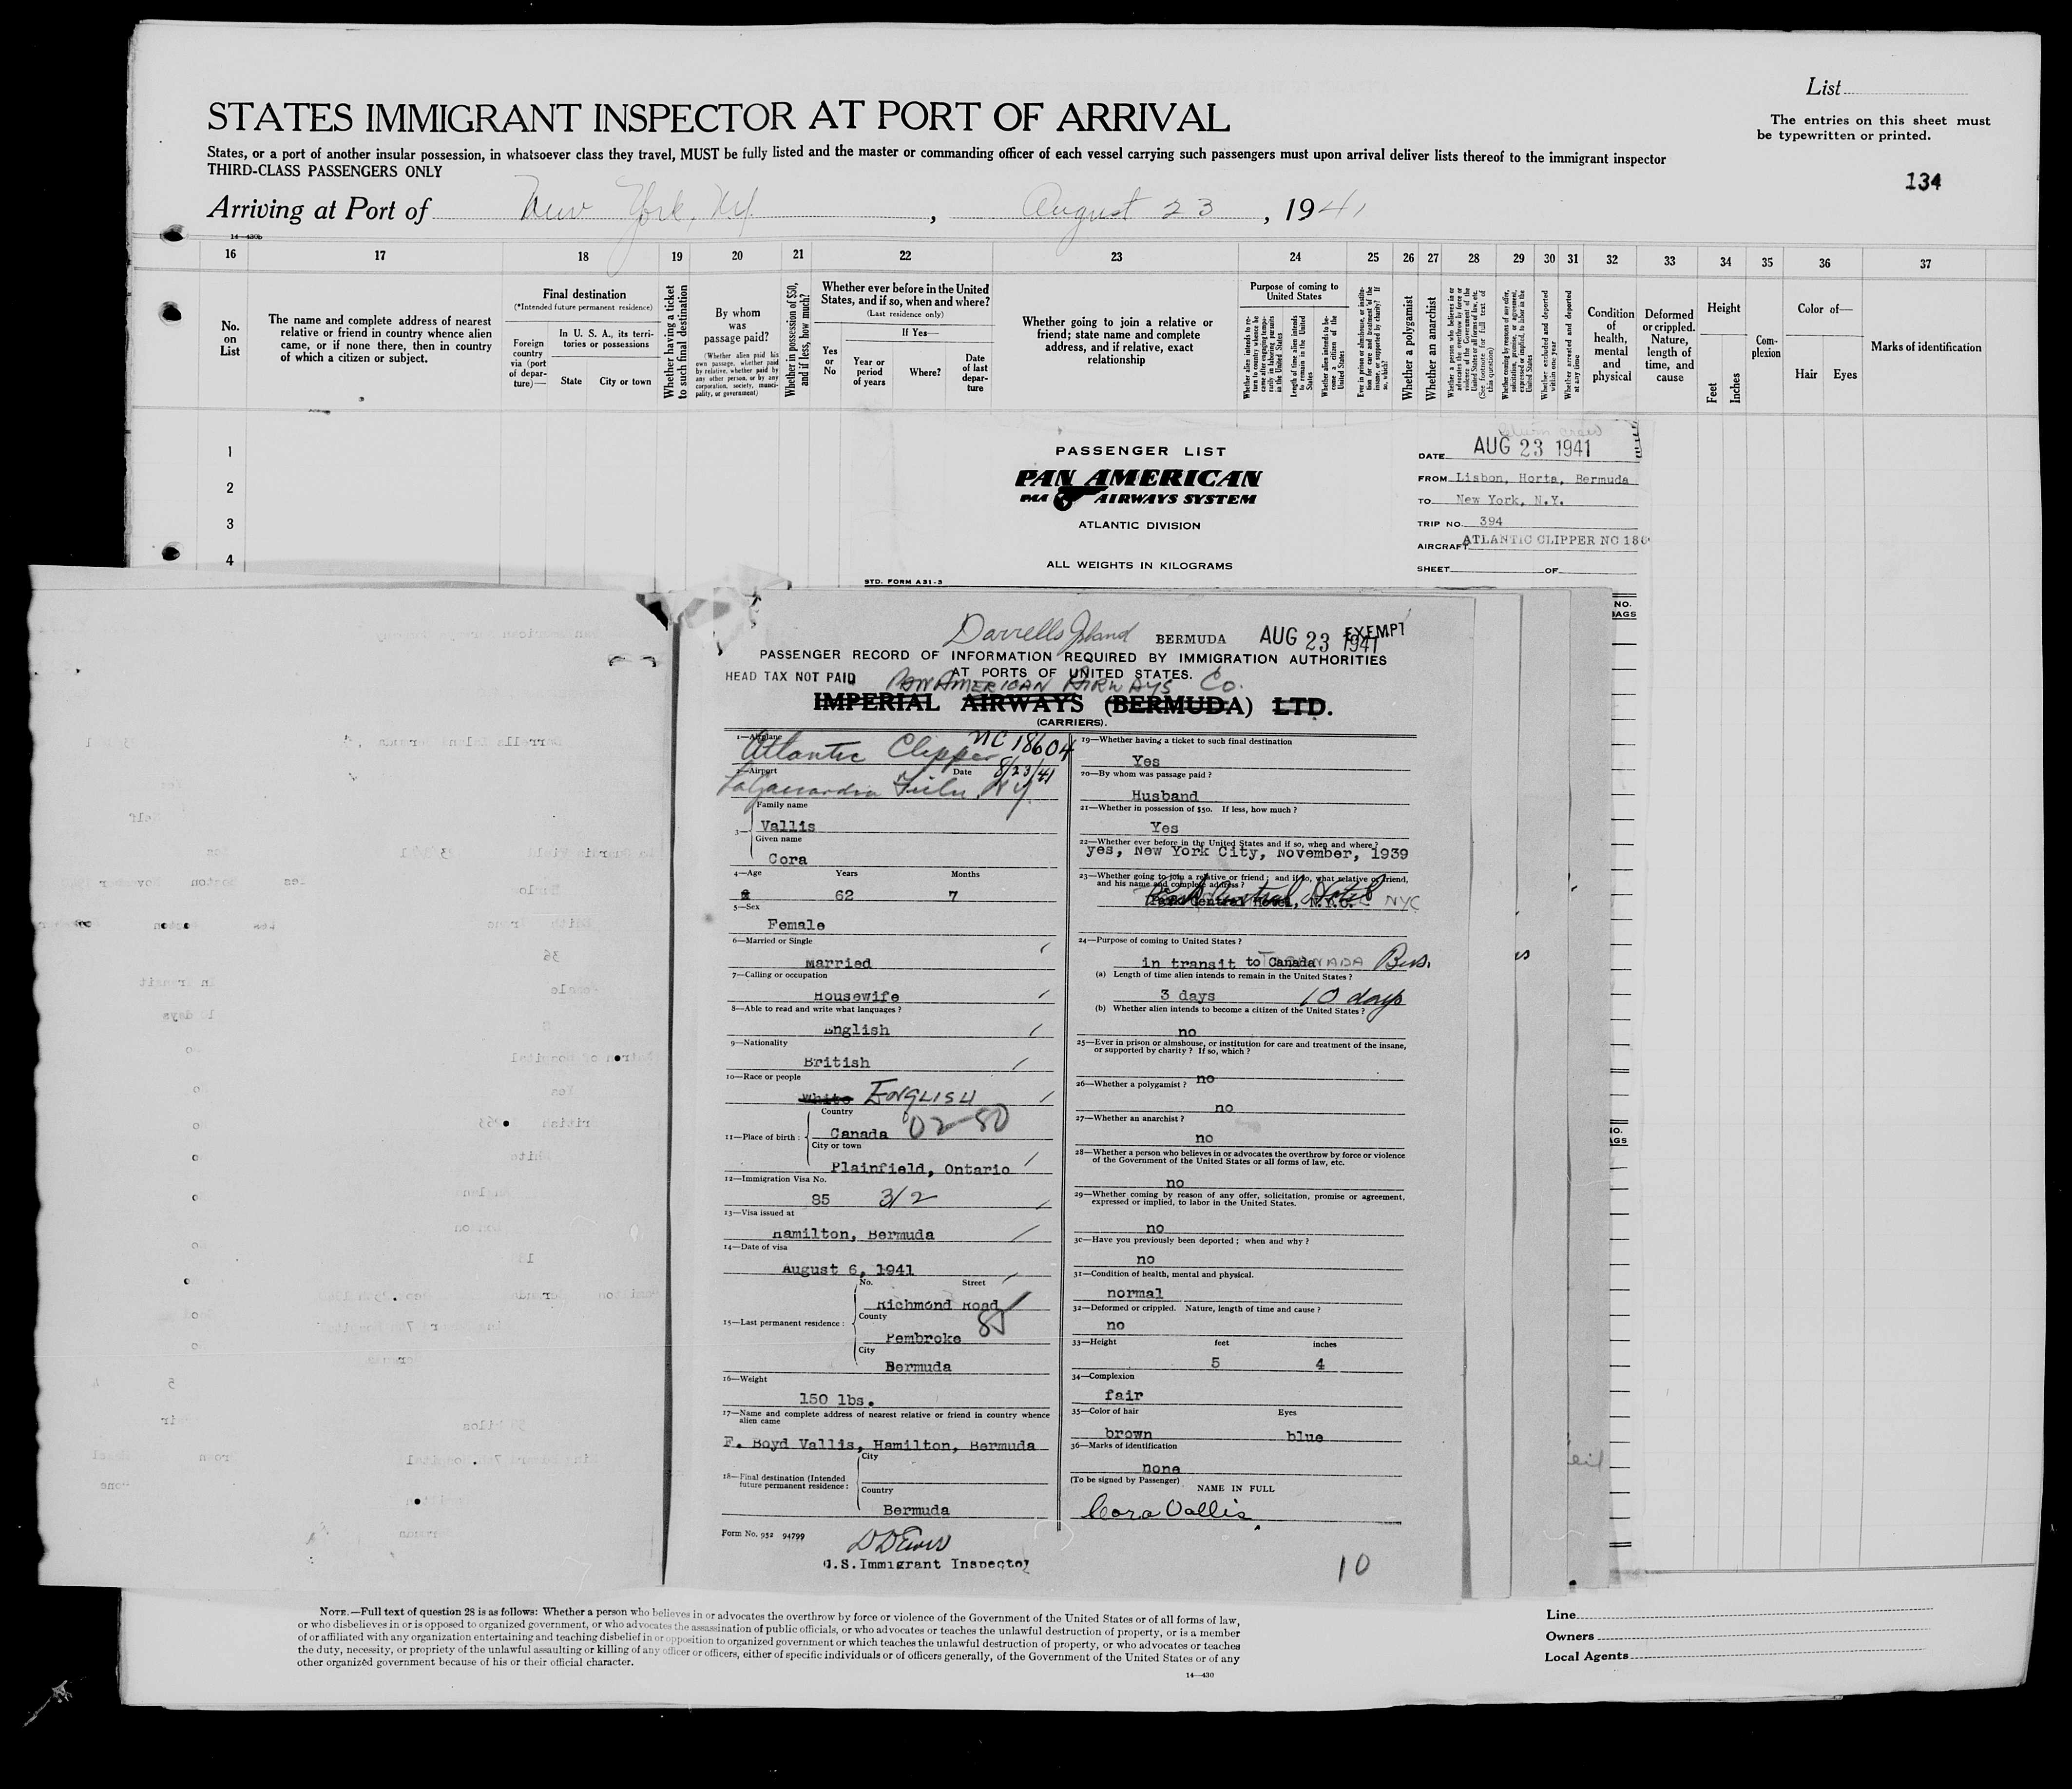 List
STATES IMMIGRANT INSPECTOR AT PORT OF ARRIVAL
The entries on this sheet must
be typewritten or printed.
States, or a port of another insular possession, in whatsoever class they travel, MUST be fully listed and the master or commanding officer of each vessel carrying such passengers must upon arrival deliver lists thereof to the immigrant inspector
THIRD-CLASS PASSENGERS ONLY
134
Arriving at Port of New York, NY. , August 23 , 1941
14—430b
16 17 18 19 20 21 22 23 24 25 26 27 28 29 30 31 32 33 34 35 36 37
No.
on
List
The name and complete address of nearest
relative or friend in country whence alien
came, or if none there, then in country
of which a citizen or subject.
Final destination
(*Intended future permanent residence)
Foreign
country
via (port
of depar-
ture)—
In U. S. A., its terri-
tories or possessions
State City or town
Whether having a ticket
to such final destination
By whom
was
passage paid?
(Whether alien paid his
own passage, whether paid
by relative, whether paid by
any other person, or by any
corporation, society, munici-
pality, or government)
Whether in possession of $50,
and if less, how much?
Whether ever before in the United
States, and if so, when and where?
(Last residence only)
If Yes—
Yes
or
No
Year or
period
of years
Where?
Date
of last
depar-
ture
Whether going to join a relative or
friend; state name and complete
address, and if relative, exact
relationship
Purpose of coming to
United States
Length of time alien intends
to remain in the United
States
Whether alien intends to be-
come a citizen of the
United States
Whether a polygamist
Whether an anarchist
Condition
of
health,
mental
and
physical
Deformed
or crippled.
Nature,
length of
time, and
cause
Height
Feet
Inches
Com-
plexion
Color of—
Hair Eyes
Marks of identification
1
2
3
4
PASSENGER LIST
PAN AMERICAN
PAA AIRWAYS SYSTEM
ATLANTIC DIVISION
ALL WEIGHTS IN KILOGRAMS
STD. FORM A31-3
DATE AUG 23 1941
FROM Lisbon, Horta, Bermuda
TO New York, N.Y.
TRIP NO. 394
AIRCRAFT ATLANTIC CLIPPER NC 186
SHEET OF
Darrells Island BERMUDA AUG 23 1941 EXEMPT
PASSENGER RECORD OF INFORMATION REQUIRED BY IMMIGRATION AUTHORITIES
AT PORTS OF UNITED STATES.
HEAD TAX NOT PAID PAN AMERICAN AIRWAYS Co.
IMPERIAL AIRWAYS (BERMUDA) LTD.
(CARRIERS).
1—Airplane
Atlantic Clipper NC 18604
2—Airport Date 8/23/41
LaGuardia Field, NY
3— Family name
Vallis
Given name
Cora
4—Age Years Months
62 7
5—Sex
Female
6—Married or Single
Married
7—Calling or occupation
Housewife
8—Able to read and write what languages ?
English
9—Nationality
British
10—Race or people
White ENGLISH
11—Place of birth : Country
Canada 02-80
City or town
Plainfield, Ontario
12—Immigration Visa No.
85 3/2
13—Visa issued at
Hamilton, Bermuda
14—Date of visa
August 6, 1941
15—Last permanent residence : No. Street
Richmond Road
County 85
Pembroke
City
Bermuda
16—Weight
150 lbs.
17—Name and complete address of nearest relative or friend in country whence
alien came
F. Boyd Vallis, Hamilton, Bermuda
18—Final destination (Intended
future permanent residence :
City
Country
Bermuda
Form No. 952 94799
U.S.Immigrant Inspector
19—Whether having a ticket to such final destination
Yes
20—By whom was passage paid ?
Husband
21—Whether in possession of $50. If less, how much ?
Yes
22—Whether ever before in the United States and if so, when and where?
yes, New York City, November, 1939
23—Whether going to join a relative or friend ; and if so, what relative or friend,
and his name and complete address ?
Park Central Hotel, N.Y.C. NYC
24—Purpose of coming to United States ?
in transit to Canada Bus.
(a) Length of time alien intends to remain in the United States ?
3 days 10 days
(b) Whether alien intends to become a citizen of the United States ?
no
25—Ever in prison or almshouse, or institution for care and treatment of the insane,
or supported by charity ? If so, which ?
no
26—Whether a polygamist ?
no
27—Whether an anarchist ?
no
28—Whether a person who believes in or advocates the overthrow by force or violence
of the Government of the United States or all forms of law, etc.
no
29—Whether coming by reason of any offer, solicitation, promise or agreement,
expressed or implied, to labor in the United States.
no
30—Have you previously been deported ; when and why ?
no
31—Condition of health, mental and physical.
normal
32—Deformed or crippled. Nature, length of time and cause ?
no
33—Height feet inches
5 4
34—Complexion
fair
35—Color of hair Eyes
brown blue
36—Marks of identification
none
(To be signed by Passenger)
NAME IN FULL
Cora Vallis
10
NOTE.—Full text of question 28 is as follows: Whether a person who believes in or advocates the overthrow by force or violence of the Government of the United States or of all forms of law,
or who disbelieves in or is opposed to organized government, or who advocates the assassination of public officials, or who advocates or teaches the unlawful destruction of property, or is a member
of or affiliated with any organization entertaining and teaching disbelief in or opposition to organized government or which teaches the unlawful destruction of property, or who advocates or teaches
the duty, necessity, or propriety of the unlawful assaulting or killing of any officer or officers, either of specific individuals or of officers generally, of the Government of the United States or of any
other organized government because of his or their official character.
14—430
Line
Owners
Local Agents